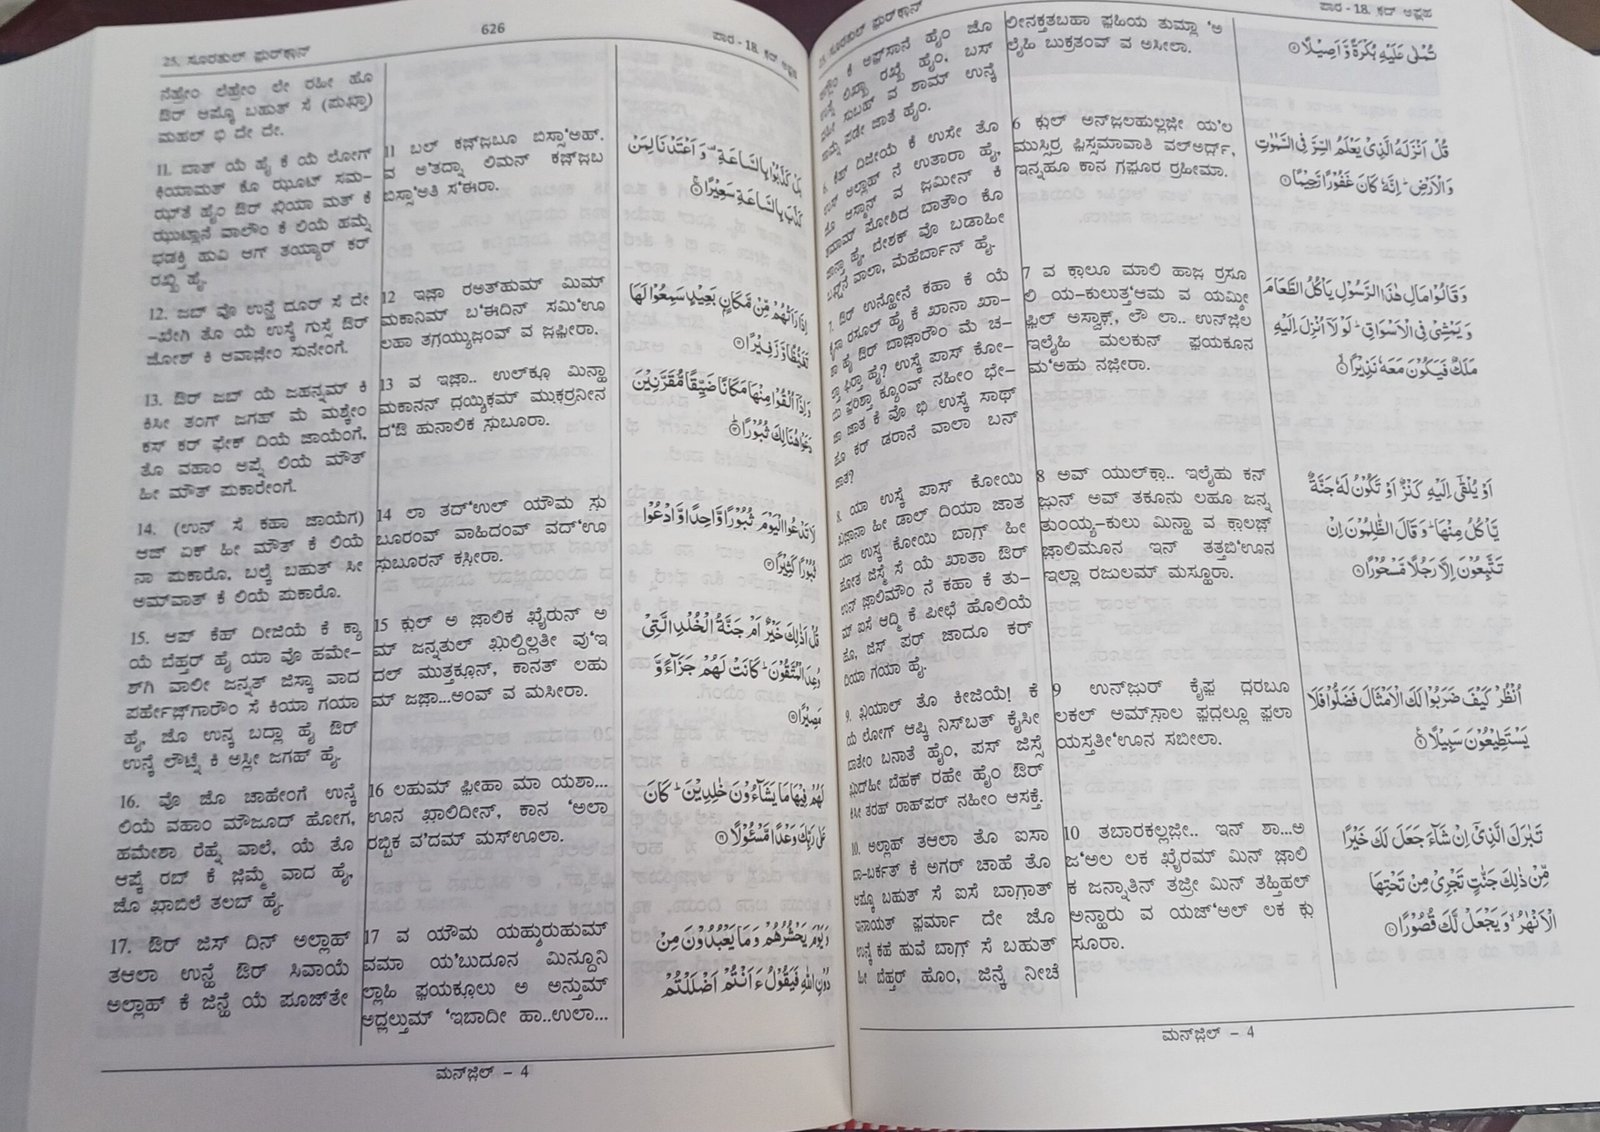 25. ಸೂರತುಲ್ ಫುರ್‌ಕಾನ್
626
ಪಾರ - 18. ಕದ್ ಅಫ್ಲಹ
ನೆಹ್ರೇಂ ಲೆಹ್ರೇಂ ಲೇ ರಹೀ ಹೊ
ಔರ್ ಆಪ್ಕೊ ಬಹುತ್ ಸೆ (ಪುಖ್ತಾ)
ಮಹಲ್ ಭಿ ದೇ ದೇ.
11. ಬಾತ್ ಯೆ ಹೈ ಕೆ ಯೆ ಲೋಗ್
ಕಿಯಾಮತ್ ಕೊ ಝೂಟ್ ಸಮ–
ಝ್‌ತೆ ಹೈಂ ಔರ್ ಖಿಯಾ ಮತ್ ಕೆ
ಝುಟ್ಲಾನೆ ವಾಲೌಂ ಕೆ ಲಿಯೆ ಹಮ್ನೆ
ಭಡಕ್ತಿ ಹುವಿ ಆಗ್ ತಯ್ಯಾರ್ ಕರ್
ರಖ್ಖಿ ಹೈ.
12. ಜಬ್ ವೊ ಉನ್ಹೆ ದೂರ್ ಸೆ ದೇ
–ಖೇಗಿ ತೊ ಯೆ ಉಸ್ಕೆ ಗುಸ್ಸೆ ಔರ್
ಜೋಶ್ ಕಿ ಆವಾಜ಼ೇಂ ಸುನೇಂಗೆ.
13. ಔರ್ ಜಬ್ ಯೆ ಜಹನ್ನಮ್ ಕಿ
ಕಿಸೀ ತಂಗ್ ಜಗಹ್ ಮೆ ಮಶ್ಕೇಂ
ಕಸ್ ಕರ್ ಫೇಕ್ ದಿಯೆ ಜಾಯೆಂಗೆ,
ತೊ ವಹಾಂ ಅಪ್ನೆ ಲಿಯೆ ಮೌತ್
ಹೀ ಮೌತ್ ಪುಕಾರೇಂಗೆ.
14. (ಉನ್ ಸೆ ಕಹಾ ಜಾಯೆಗ)
ಆಜ್ ಏಕ್ ಹೀ ಮೌತ್ ಕೆ ಲಿಯೆ
ನಾ ಪುಕಾರೊ, ಬಲ್ಕೆ ಬಹುತ್ ಸೀ
ಅಮ್‌ವಾತ್ ಕೆ ಲಿಯೆ ಪುಕಾರೊ.
15. ಆಪ್ ಕೆಹ್ ದೀಜಿಯೆ ಕೆ ಕ್ಯಾ
ಯೆ ಬೆಹ್ತರ್ ಹೈ ಯಾ ವೊ ಹಮೇ–
ಶ್‌ಗಿ ವಾಲೀ ಜನ್ನತ್ ಜಿಸ್ಕಾ ವಾದ
ಪರ್ಹೇಜ಼್‌ಗಾರೌಂ ಸೆ ಕಿಯಾ ಗಯಾ
ಹೈ, ಜೊ ಉನ್ಕ ಬದ್ಲಾ ಹೈ ಔರ್
ಉನ್ಕೆ ಲೌಟ್ನೆ ಕಿ ಅಸ್ಲೀ ಜಗಹ್ ಹೈ.
16. ವೊ ಜೊ ಚಾಹೇಂಗೆ ಉನ್ಕೆ
ಲಿಯೆ ವಹಾಂ ಮೌಜೂದ್ ಹೋಗ,
ಹಮೇಶಾ ರೆಹ್ನೆ ವಾಲೆ, ಯೆ ತೊ
ಆಪ್ಕೆ ರಬ್ ಕೆ ಜ಼ಿಮ್ಮೆ ವಾದ ಹೈ,
ಜೊ ಖ಼ಾಬಿಲೆ ತಲಬ್ ಹೈ.
17. ಔರ್ ಜಿಸ್ ದಿನ್ ಅಲ್ಲಾಹ್
ತಆಲಾ ಉನ್ಹೆ ಔರ್ ಸಿವಾಯೆ
ಅಲ್ಲಾಹ್ ಕೆ ಜಿನ್ಹೆ ಯೆ ಪೂಜ್‌ತೇ
11 ಬಲ್ ಕಜ಼್ಜ಼ಬೂ ಬಿಸ್ಸಾ‘ಅಹ್.
ವ ಅ‘ತದ್ನಾ ಲಿಮನ್ ಕಜ಼್ಜ಼ಬ
ಬಿಸ್ಸಾ‘ಅತಿ ಸ‘ಈರಾ.
12 ಇಜ಼ಾ ರಅತ್‌ಹುಮ್ ಮಿಮ್
ಮಕಾನಿಮ್ ಬ‘ಈದಿನ್ ಸಮಿ‘ಊ
ಲಹಾ ತಗ಼ಯ್ಯುಜ಼ಂವ್ ವ ಜ಼ಫ಼ೀರಾ.
13 ವ ಇಜ಼ಾ.. ಉಲ್‌ಕೂ ಮಿನ್ಹಾ
ಮಕಾನನ್ ಧ಼ಯ್ಯಿಕಮ್ ಮುಕರ‍್ರನೀನ
ದ‘ಔ ಹುನಾಲಿಕ ಸು಼ಬೂರಾ.
14 ಲಾ ತದ್‘ಉಲ್ ಯೌಮ ಸು಼
ಬೂರಂವ್ ವಾಹಿದಂವ್ ವದ್‘ಊ
ಸು಼ಬೂರನ್ ಕಸೀ಼ರಾ.
15 ಕುಲ್ ಅ ಜ಼ಾಲಿಕ ಖ಼ೈರುನ್ ಅ
ಮ್ ಜನ್ನತುಲ್ ಖ಼ುಲ್ದಿಲ್ಲತೀ ವು‘ಇ
ದಲ್ ಮುತ್ತಕೂನ್, ಕಾನತ್ ಲಹು
ಮ್ ಜಜ಼ಾ...ಅಂವ್ ವ ಮಸೀರಾ.
16 ಲಹುಮ್ ಫ಼ೀಹಾ ಮಾ ಯಶಾ...
ಊನ ಖ಼ಾಲಿದೀನ್, ಕಾನ ‘ಅಲಾ
ರಬ್ಬಿಕ ವ‘ದಮ್ ಮಸ್‌ಊಲಾ.
17 ವ ಯೌಮ ಯಹ್ಶುರುಹುಮ್
ವಮಾ ಯ‘ಬುದೂನ ಮಿನ್ದೂನಿ
ಲ್ಲಾಹಿ ಫ಼ಯಕೂಲು ಅ ಅನ್ತುಮ್
ಅದ್ಲಲ್ತುಮ್ ‘ಇಬಾದೀ ಹಾ..ಉಲಾ...
بَلْ كَذَّبُوْا بِالسَّاعَةِ وَاَعْتَدْنَا لِمَنْ
كَذَّبَ بِالسَّاعَةِ سَعِيْرًا ۝
اِذَا رَاَتْهُمْ مِّنْ مَّكَانٍۭ بَعِيْدٍ سَمِعُوْا لَهَا
تَغَيُّظًا وَّزَفِيْرًا ۝
وَاِذَاۤ اُلْقُوْا مِنْهَا مَكَانًا ضَيِّقًا مُّقَرَّنِيْنَ
دَعَوْا هُنَالِكَ ثُبُوْرًا ۝
لَا تَدْعُوا الْيَوْمَ ثُبُوْرًا وَّاحِدًا وَّادْعُوْا
ثُبُوْرًا كَثِيْرًا ۝
قُلْ اَذٰلِكَ خَيْرٌ اَمْ جَنَّةُ الْخُلْدِ الَّتِىْ
وُعِدَ الْمُتَّقُوْنَ كَانَتْ لَهُمْ جَزَآءً وَّ
مَصِيْرًا ۝
لَهُمْ فِيْهَا مَا يَشَآءُوْنَ خٰلِدِيْنَ كَانَ
عَلٰى رَبِّكَ وَعْدًا مَّسْئُوْلًا ۝
وَيَوْمَ يَحْشُرُهُمْ وَمَا يَعْبُدُوْنَ مِنْ
دُوْنِ اللّٰهِ فَيَقُوْلُ ءَاَنْتُمْ اَضْلَلْتُمْ
ಮನ್‌ಜ಼ಿಲ್ – 4
25. ಸೂರತುಲ್ ಫುರ್‌ಕಾನ್
ಪಾರ - 18. ಕದ್ ಅಫ್ಲಹ
ಕೆ ಅಫ್‌ಸಾನೆ ಹೈಂ ಜೊ
ಲಿಖ್ವಾ ರಖ್ಖೆ ಹೈಂ, ಬಸ್
ಸುಬಹ್ ವ ಶಾಮ್ ಉನ್ಕೆ
ಸಾಮ್ನೆ ಪಡೇ ಜಾತೆ ಹೈಂ.
6. ಕೆಹ್ ದಿಜೀಯೆ ಕೆ ಉಸೇ ತೊ
ಉಸ್ ಅಲ್ಲಾಹ್ ನೆ ಉತಾರಾ ಹೈ,
ಜೊ ಆಸ್ಮಾನ್ ವ ಜ಼ಮೀನ್ ಕಿ
ತಮಾಮ್ ಪೋಶಿದ ಬಾತೌಂ ಕೊ
ಜಾನ್ತಾ ಹೈ, ಬೇಶಕ್ ವೊ ಬಡಾಹೀ
ಬಖ್ಷ್‌ನೆ ವಾಲಾ, ಮೆಹೆರ್ಬಾನ್ ಹೈ.
7. ಔರ್ ಉನ್ಹೋನೆ ಕಹಾ ಕೆ ಯೆ
ಕೈಸಾ ರಸೂಲ್ ಹೈ ಕೆ ಖಾನಾ ಖಾ–
ತಾ ಹೈ ಔರ್ ಬಾಜ಼ಾರೌಂ ಮೆ ಚ–
ಲ್ತಾ ಫಿರ್ತಾ ಹೈ? ಉಸ್ಕೆ ಪಾಸ್ ಕೋ–
ಯಿ ಫ಼ರಿಶ್ತಾ ಕ್ಯೂಂವ್ ನಹೀಂ ಭೇ–
ಜಾ ಜಾತ ಕೆ ವೊ ಭಿ ಉಸ್ಕೆ ಸಾಥ್
ಹೊ ಕರ್ ಡರಾನೆ ವಾಲಾ ಬನ್
ಜಾತ?
8. ಯಾ ಉಸ್ಕೆ ಪಾಸ್ ಕೋಯಿ
ಖ಼ಜ಼ಾನಾ ಹೀ ಡಾಲ್ ದಿಯಾ ಜಾತ
ಯಾ ಉಸ್ಕ ಕೋಯಿ ಬಾಗ಼್ ಹೀ
ಹೋತ ಜಿಸ್ಮೆ ಸೆ ಯೆ ಖಾತಾ ಔರ್
ಉನ್ ಜ಼ಾಲಿಮೌಂ ನೆ ಕಹಾ ಕೆ ತು–
ಮ್ ಐಸೆ ಆದ್ಮಿ ಕೆ ಪೀಛೆ ಹೊಲಿಯೆ
ಹೊ, ಜಿಸ್ ಪರ್ ಜಾದೂ ಕರ್
ದಿಯಾ ಗಯಾ ಹೈ.
9. ಖ಼ಯಾಲ್ ತೊ ಕೀಜಿಯೆ! ಕೆ
ಯೆ ಲೋಗ್ ಆಪ್ಕಿ ನಿಸ್‌ಬತ್ ಕೈಸೀ
ಬಾತೇಂ ಬನಾತೆ ಹೈಂ, ಪಸ್ ಜಿಸ್ಸೆ
ಖ಼ುದ್‌ಹೀ ಬೆಹಕ್ ರಹೇ ಹೈಂ ಔರ್
ಕಿಸೀ ತರಹ್ ರಾಹ್‌ಪರ್ ನಹೀಂ ಆಸಕ್ತೆ.
10. ಅಲ್ಲಾಹ್ ತಆಲಾ ತೊ ಐಸಾ
ಬಾ–ಬರ್ಕತ್ ಕೆ ಅಗರ್ ಚಾಹೆ ತೊ
ಆಪ್ಕೊ ಬಹುತ್ ಸೆ ಐಸೆ ಬಾಗ಼ಾತ್
ಇನಾಯತ್ ಫ಼ರ್ಮಾ ದೇ ಜೊ
ಉನ್ಕೆ ಕಹೆ ಹುವೆ ಬಾಗ಼್ ಸೆ ಬಹುತ್
ಹೀ ಬೆಹ್ತರ್ ಹೊಂ, ಜಿನ್ಕೆ ನೀಚೆ
ಲೀನಕ್ತತಬಹಾ ಫ಼ಹಿಯ ತುಮ್ಲಾ ‘ಅ
ಲೈಹಿ ಬುಕ್ರತಂವ್ ವ ಅಸೀಲಾ.
6 ಕುಲ್ ಅನ್‌ಜ಼ಲಹುಲ್ಲಜ಼ೀ ಯ‘ಲ
ಮುಸ್ಸಿರ‍್ರ ಫ಼ಿಸ್ಸಮಾವಾತಿ ವಲ್‌ಅರ್ಧ಼್,
ಇನ್ನಹೂ ಕಾನ ಗ಼ಫೂರ ರ‍್ರಹೀಮಾ.
7 ವ ಕಾಲೂ ಮಾಲಿ ಹಾಜ಼ ರ‍್ರಸೂ
ಲಿ ಯ–ಕುಲುತ್ತ‘ಆಮ ವ ಯಮ್ಶೀ
ಫ಼ಿಲ್ ಅಸ್ವಾಕ್, ಲೌ ಲಾ.. ಉನ್‌ಜ಼ಿಲ
ಇಲೈಹಿ ಮಲಕುನ್ ಫ಼ಯಕೂನ
ಮ‘ಅಹು ನಜ಼ೀರಾ.
8 ಅವ್ ಯುಲ್‌ಕಾ.. ಇಲೈಹು ಕನ್
ಜ಼ುನ್ ಅವ್ ತಕೂನು ಲಹೂ ಜನ್ನ
ತುಂಯ್ಯ–ಕುಲು ಮಿನ್ಹಾ ವ ಕಾಲಜ಼್
ಜ಼ಾಲಿಮೂನ ಇನ್ ತತ್ತಬಿ‘ಊನ
ಇಲ್ಲಾ ರಜುಲಮ್ ಮಸ್ಹೂರಾ.
9 ಉನ್‌ಜ಼ುರ್ ಕೈಫ಼ ಧ಼ರಬೂ
ಲಕಲ್ ಅಮ್‌ಸಾ಼ಲ ಫ಼ಧ಼ಲ್ಲೂ ಫ಼ಲಾ
ಯಸ್ತತೀ‘ಊನ ಸಬೀಲಾ.
10 ತಬಾರಕಲ್ಲಜ಼ೀ.. ಇನ್ ಶಾ...ಅ
ಜ‘ಅಲ ಲಕ ಖ಼ೈರಮ್ ಮಿನ್ ಜ಼ಾಲಿ
ಕ ಜನ್ನಾತಿನ್ ತಜ್ರೀ ಮಿನ್ ತಹ್ತಿಹಲ್
ಅನ್ಹಾರು ವ ಯಜ್‘ಅಲ್ ಲಕ ಕು
ಸೂರಾ.
تُمْلٰى عَلَيْهِ بُكْرَةً وَّاَصِيْلًا ۝
قُلْ اَنْزَلَهُ الَّذِىْ يَعْلَمُ السِّرَّ فِى السَّمٰوٰتِ
وَالْاَرْضِ اِنَّهٗ كَانَ غَفُوْرًا رَّحِيْمًا ۝
وَقَالُوْا مَالِ هٰذَا الرَّسُوْلِ يَاْكُلُ الطَّعَامَ
وَيَمْشِىْ فِى الْاَسْوَاقِ لَوْلَاۤ اُنْزِلَ اِلَيْهِ
مَلَكٌ فَيَكُوْنَ مَعَهٗ نَذِيْرًا ۝
اَوْ يُلْقٰۤى اِلَيْهِ كَنْزٌ اَوْ تَكُوْنُ لَهٗ جَنَّةٌ
يَّاْكُلُ مِنْهَا وَقَالَ الظّٰلِمُوْنَ اِنْ
تَتَّبِعُوْنَ اِلَّا رَجُلًا مَّسْحُوْرًا ۝
اُنْظُرْ كَيْفَ ضَرَبُوْا لَكَ الْاَمْثَالَ فَضَلُّوْا فَلَا
يَسْتَطِيْعُوْنَ سَبِيْلًا ۝
تَبٰرَكَ الَّذِىْۤ اِنْ شَآءَ جَعَلَ لَكَ خَيْرًا
مِّنْ ذٰلِكَ جَنّٰتٍ تَجْرِىْ مِنْ تَحْتِهَا
الْاَنْهٰرُ وَيَجْعَلْ لَّكَ قُصُوْرًا ۝
ಮನ್‌ಜ಼ಿಲ್ – 4